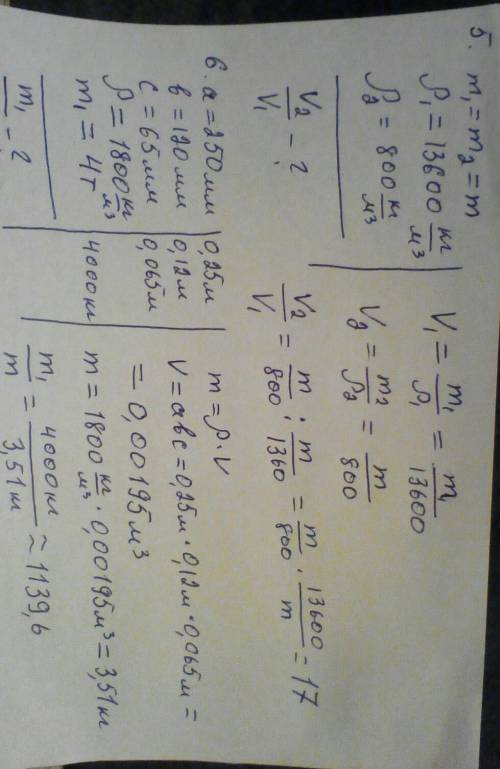 5. m₁ = m₂ = m
ρ₁ = 13600 кг/м³
ρ₂ = 800 кг/м³
V₂/V₁ - ?
V₁ = m₁/ρ₁ = m/13600
V₂ = m₂/ρ₂ = m/800
V₂/V₁ = m/800 : m/1360 = m/800 · 13600/m = 17
6. a = 250 мм
в = 120 мм
c = 65 мм
ρ = 1800 кг/м³
m₁ = 4т
m₁/ - ?
0,25м
0,12м
0,065м
4000кг
m = ρ · V
V = авс = 0,25м · 0,12м · 0,065м =
= 0,00195м³
m = 1800 кг/м³ · 0,00195м³ = 3,51 кг
m₁/m = 4000кг/3,51кг ≈ 1139,6